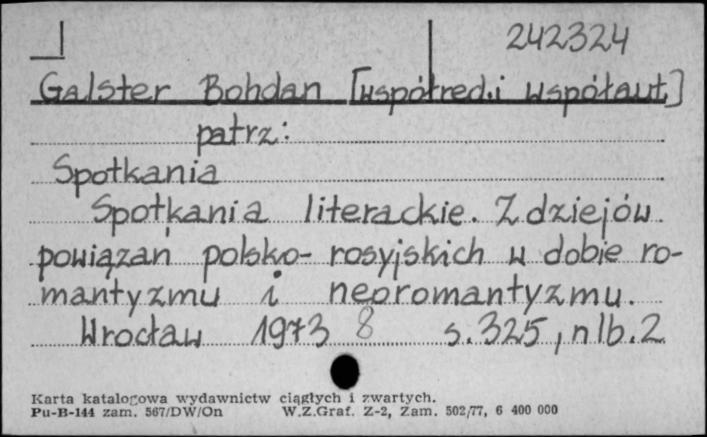 242324
Galster Bohdan [współred.i współaut.]
patrz:
Spotkania
Spotkania literackie. Z dziejów
powiązan polsko-rosyjskich w dobie ro-
mantyzmu i neoromantyzmu.
Wrocław 1973 8 s.325, nlb.2
Karta katalogowa wydawnictw ciągłych i zwartych.
Pu-B-144 zam. 567/DW/On W.Z.Graf. Z-2, Zam. 502/77, 6 400 000